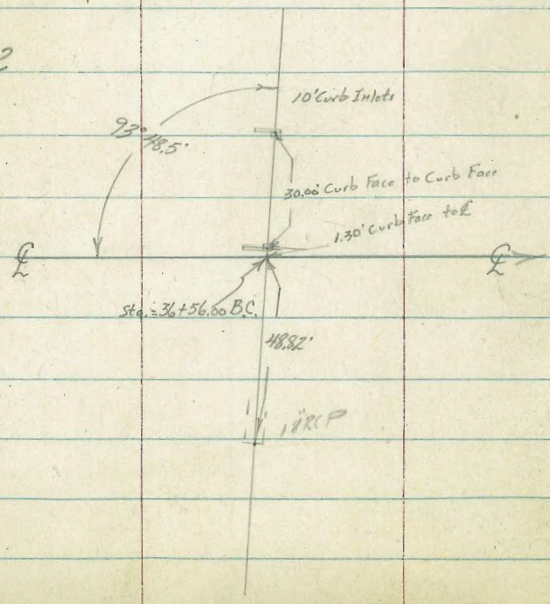 2
10' Curb Inlets
93° 48.5'
30.00' Curb Face to Curb Face
1.30' Curb Face to ℄
℄
℄
Sta. = 36+56.00 B.C.
48.82'
18" RCP